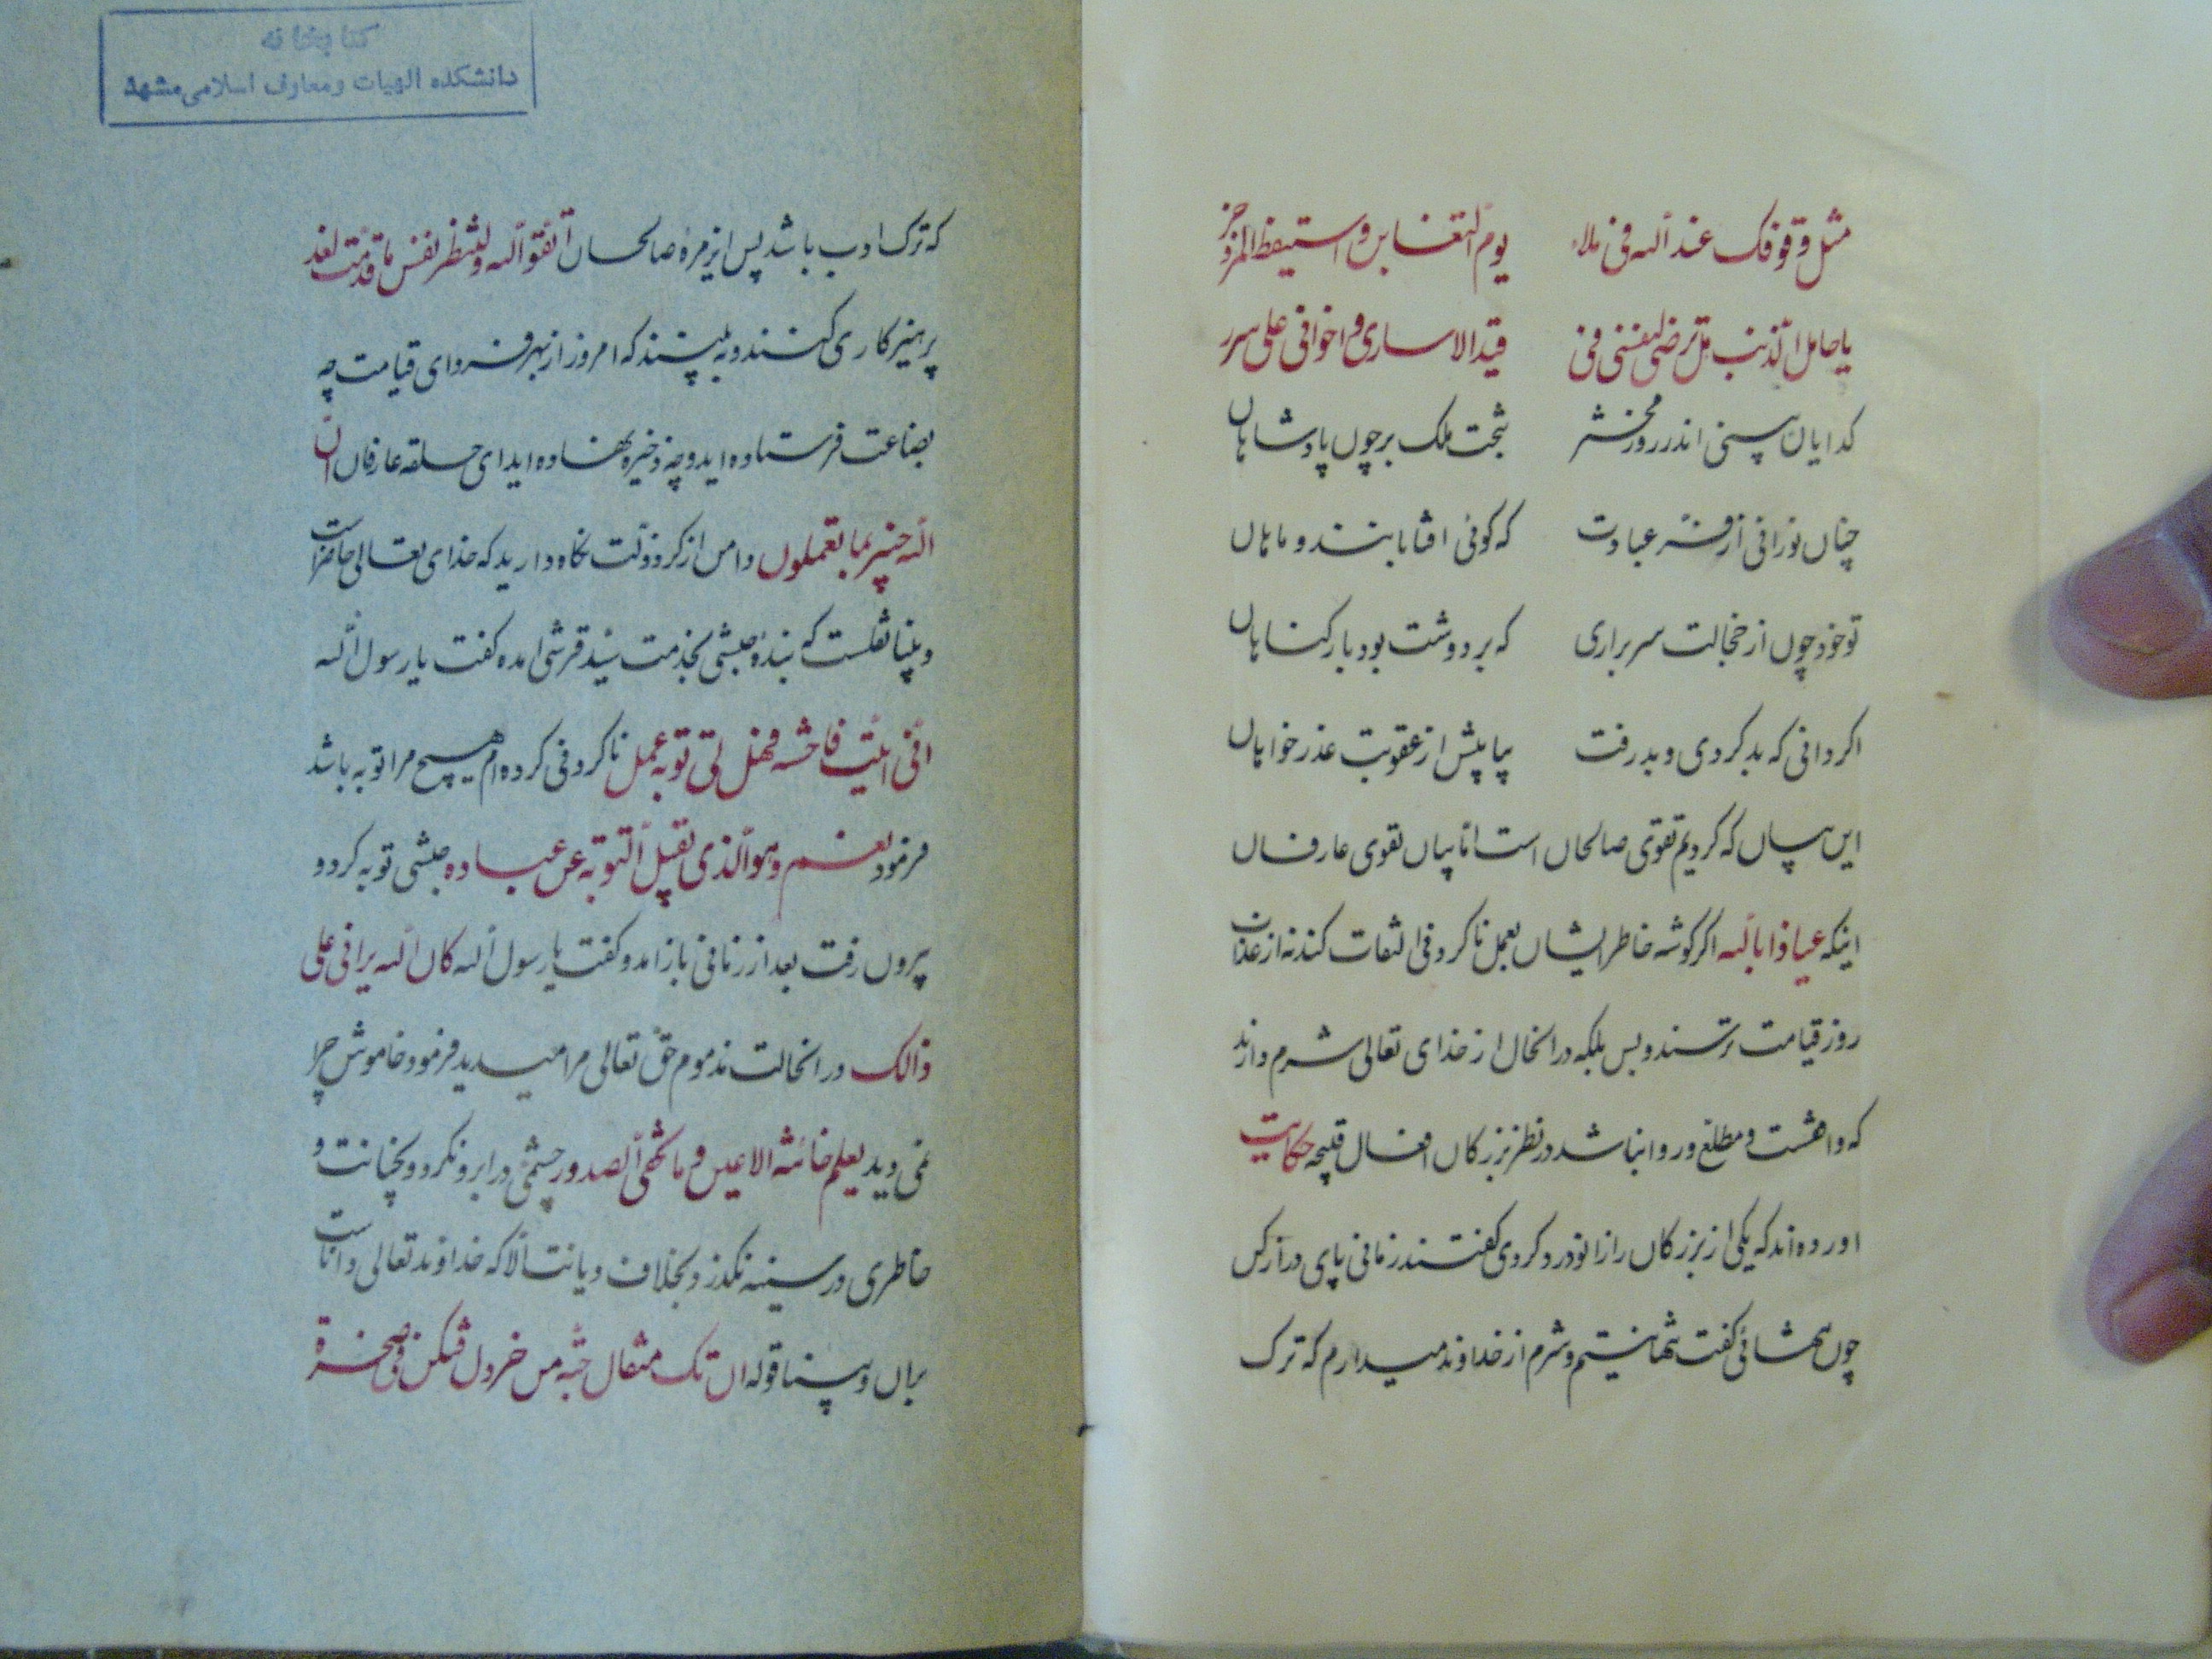 مثل وقوفک عند الله فی ملاء یوم التغابن و استیقظ المزدجر
یا حامل الذنب هل ترضی لنفسی فی قید الاساری و اخوانی علی سرر
کدایان بینی اندر روز محشر بتخت ملک بر چون پادشاهان
چنان نورانی از فر عبادت که کوئی افتابانند و ماهان
تو خود چون از خجالت سر براری که بر دوشت بود بار کناهان
اکر دانی که بد کردی و بد رفت بیا پیش از عقوبت عذر خواهان
این بیان که کردیم تقوی صالحان است اما بیان تقوی عارفان
اینکه عیاذا بالله اکر کوشه خاطر ایشان بعمل ناکردنی التفات کند نه از عذاب
روز قیامت ترسند و بس بلکه در انحال از خدای تعالی شرم دارند
که واقفست و مطلع و روا نباشد در نظر بزرکان افعال قبیحه حکایت
اورده اند که یکی از بزرکان را زانو درد کردی کفتند زمانی پای دراز کن
چون تنهائی کفت تنها نیستم و شرم از خداوند میدارم که ترک
کتابخانه
دانشکده الهیات و معارف اسلامی مشهد
که ترک ادب باشد پس ای زمرهٔ صالحان اتقوا الله ولتنظر نفس ما قدمت لغد
پرهیزکاری کنند و به بینند که امروز از بهر فردای قیامت چه
بضاعت فرستاده اید و چه ذخیره نهاده اید ای حلقه عارفان ان
الله خبیر بما تعملون دامن از کرد زلت نکاه دارید که خدای تعالی حاضر است
و بینا نقلست که بندهٔ حبشی بخدمت سید قرشی امده کفت یا رسول الله
انی اتیت فاحشه فهل لی توبه عمل ناکردنی کرده ام هیچ مرا توبه باشد
فرمود نعم و هو الذی یقبل التوبه عن عباده حبشی توبه کرد و
بیرون رفت بعد از زمانی باز امد و کفت یا رسول الله کان الله یرانی علی
ذالک در انحالت مذموم حق تعالی مرا میدید فرمود خاموش چرا
نمی دید یعلم خائنه الاعین و ما تخفی الصدور چشمی در ابرو نکردد بخیانت و
خاطری در سینه نکذرد بخلاف دیانت الا که خداوند تعالی دانا است
بران و بینا قوله ان تک مثقال حبه من خردل فتکن فی صخرة